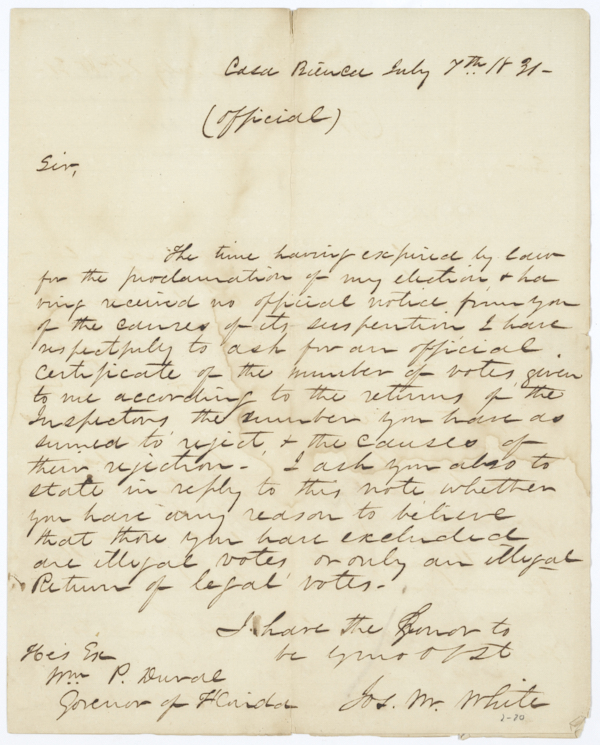 Casa Bianca July 7th 1831-
(Official)
Sir,
The time having expired by law
for the proclamation of my election, & ha
ving received no official notice from you
of the causes of its suspention I have
respectfully to ask for an official
certificate of the number of votes given
to me according to the returns of the
Inspectors the number you have as
sumed to reject, & the causes of
their rejection - I ask you also to
state in reply to this note whether
you have any reason to believe
that those you have excluded
are illegal votes or only an illegal
Return of legal votes.
I have the Honor to
be
His Ex
Wm P. Duval
Govenor of Florida
Jos. M. White
2-20